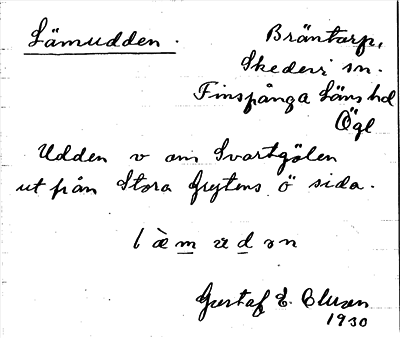 Lämudden.
Bräntorp,
Skedevi sn.
Finspånga Läns hd
Ögl
Udden v om Svartgölen
ut från Stora Grytens ö sida.
l ä̀ m u d ə n
Gustaf E. Clusen
1930